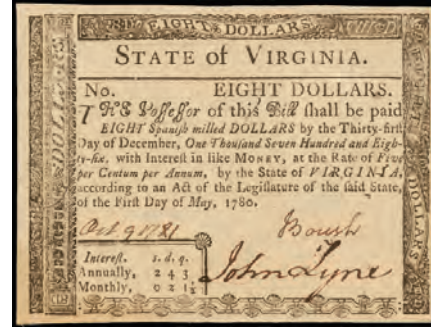 EIGHT DOLLARS
STATE of VIRGINIA.
No. EIGHT DOLLARS.
THE Poſſeſſor of this Bill ſhall be paid
EIGHT Spaniſh milled DOLLARS by the Thirty-firſt
Day of December, One Thouſand Seven Hundred and Eigh-
ty-ſix, with Intereſt in like MONEY, at the Rate of Five
per Centum per Annum, by the State of VIRGINIA,
according to an Act of the Legiſlature of the ſaid State,
of the Firſt Day of May, 1780.
Boush
Intereſt. s. d. q.
Annually, 2 4 3
Monthly, 0 2 1½
John Lyne